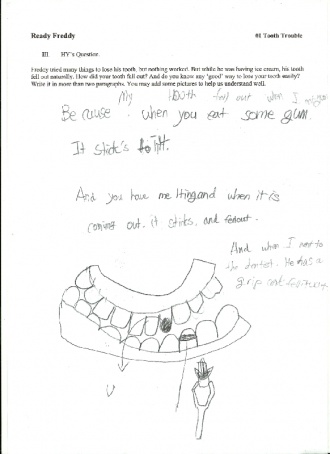 Ready Freddy #1 Tooth Trouble
III. HY's Question.
Freddy tried many things to lose his tooth, but nothing worked. But while he was having ice cream, his tooth
fell out naturally. How did your tooth fell out? And do you know any 'good' way to lose your tooth easily?
Write it in more than two paragraphs. You may add some pictures to help us understand well.
My tooth fell out when I
Because . when you eat some gum.
It stick's to It.
And you have me and when it is
coming out. it sticks. and
And when I went to
the dentest. He has a
grip